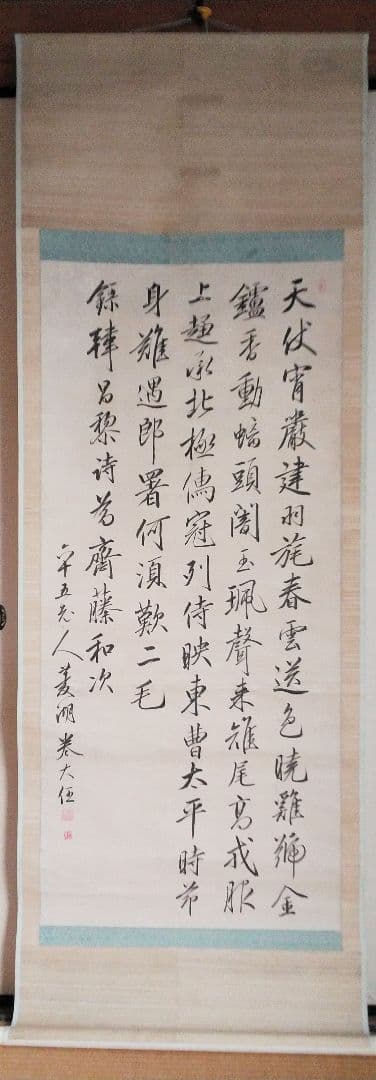 天仗宵嚴建羽旄春雲送色曉雞號金
鑪香動螭頭闇玉珮聲来雉尾高戎服
上趨承北極儒冠列侍映東曹太平時節
身難遇郎署何須歎二毛
錄韓昌黎詩為齊藤和次
六十五老人菱湖巻大任